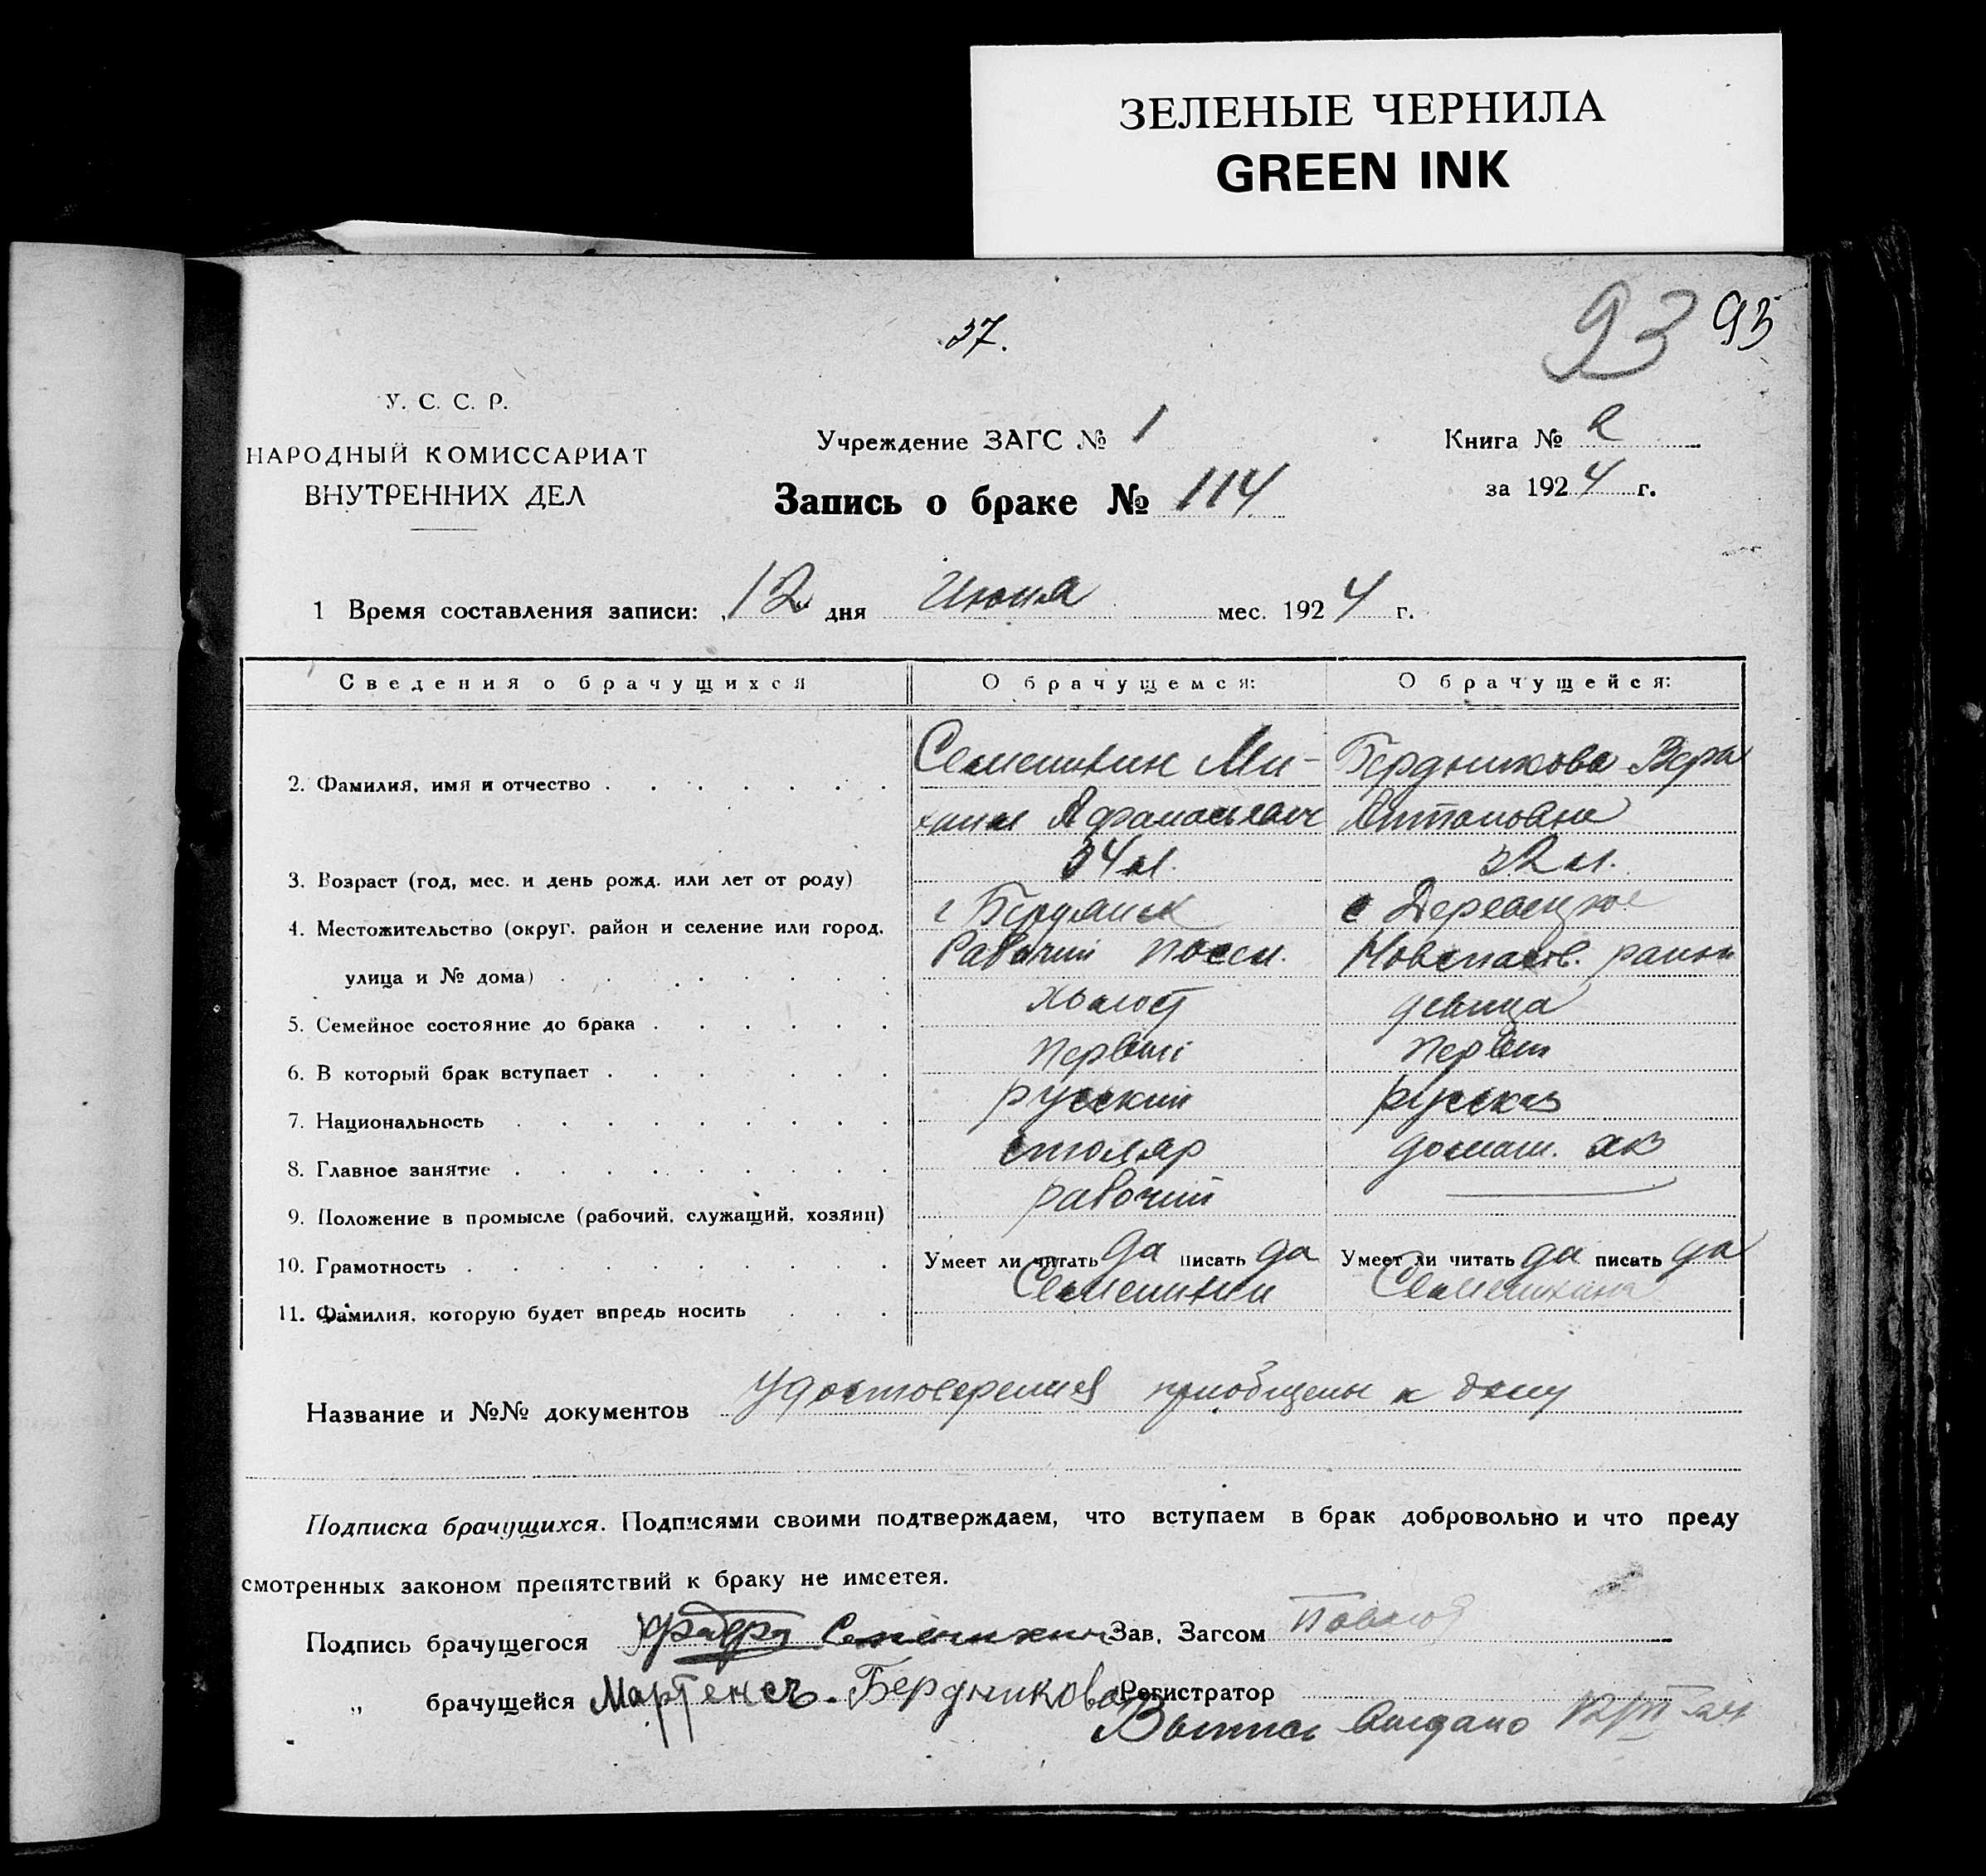 ЗЕЛЕНЫЕ ЧЕРНИЛА
GREEN INK
37.
93 93
У. С. С. Р.
НАРОДНЫЙ КОМИССАРИАТ
ВНУТРЕННИХ ДЕЛ
Учреждение ЗАГС № 1
Книга № 2
Запись о браке № 114
за 1924 г.
1 Время составления записи: 12 дня Июня мес. 1924 г.
Сведения о брачущихся О брачущемся: О брачущейся:
2. Фамилия, имя и отчество Семенихин Ми- Бердникова Вера
хаил Афанасьевич Антоновна
3. Возраст (год, мес. и день рожд. или лет от роду) 34 л. 32 л.
4. Местожительство (округ. район и селение или город, г Бердянск с
улица и № дома) Рабочий посел. Новспасов. район
5. Семейное состояние до брака холост девица
6. В который брак вступает первый первый
7. Национальность русский русская
8. Главное занятие столяр домаш. хоз
9. Положение в промысле (рабочий, служащий, хозяин) рабочий
10. Грамотность Умеет ли читать да писать да Умеет ли читать да писать да
11. Фамилия, которую будет впредь носить Семенихин Семенихина
Название и №№ документов Удостоверения приобщены к делу
Подписка брачущихся. Подписями своими подтверждаем, что вступаем в брак добровольно и что преду
смотренных законом препятствий к браку не имсетея.
Подпись брачущегося Семенихин Зав. Загсом
„ брачущейся Мартенсъ-Бердникова Регистратор
Выпись выдано 12/VI 24